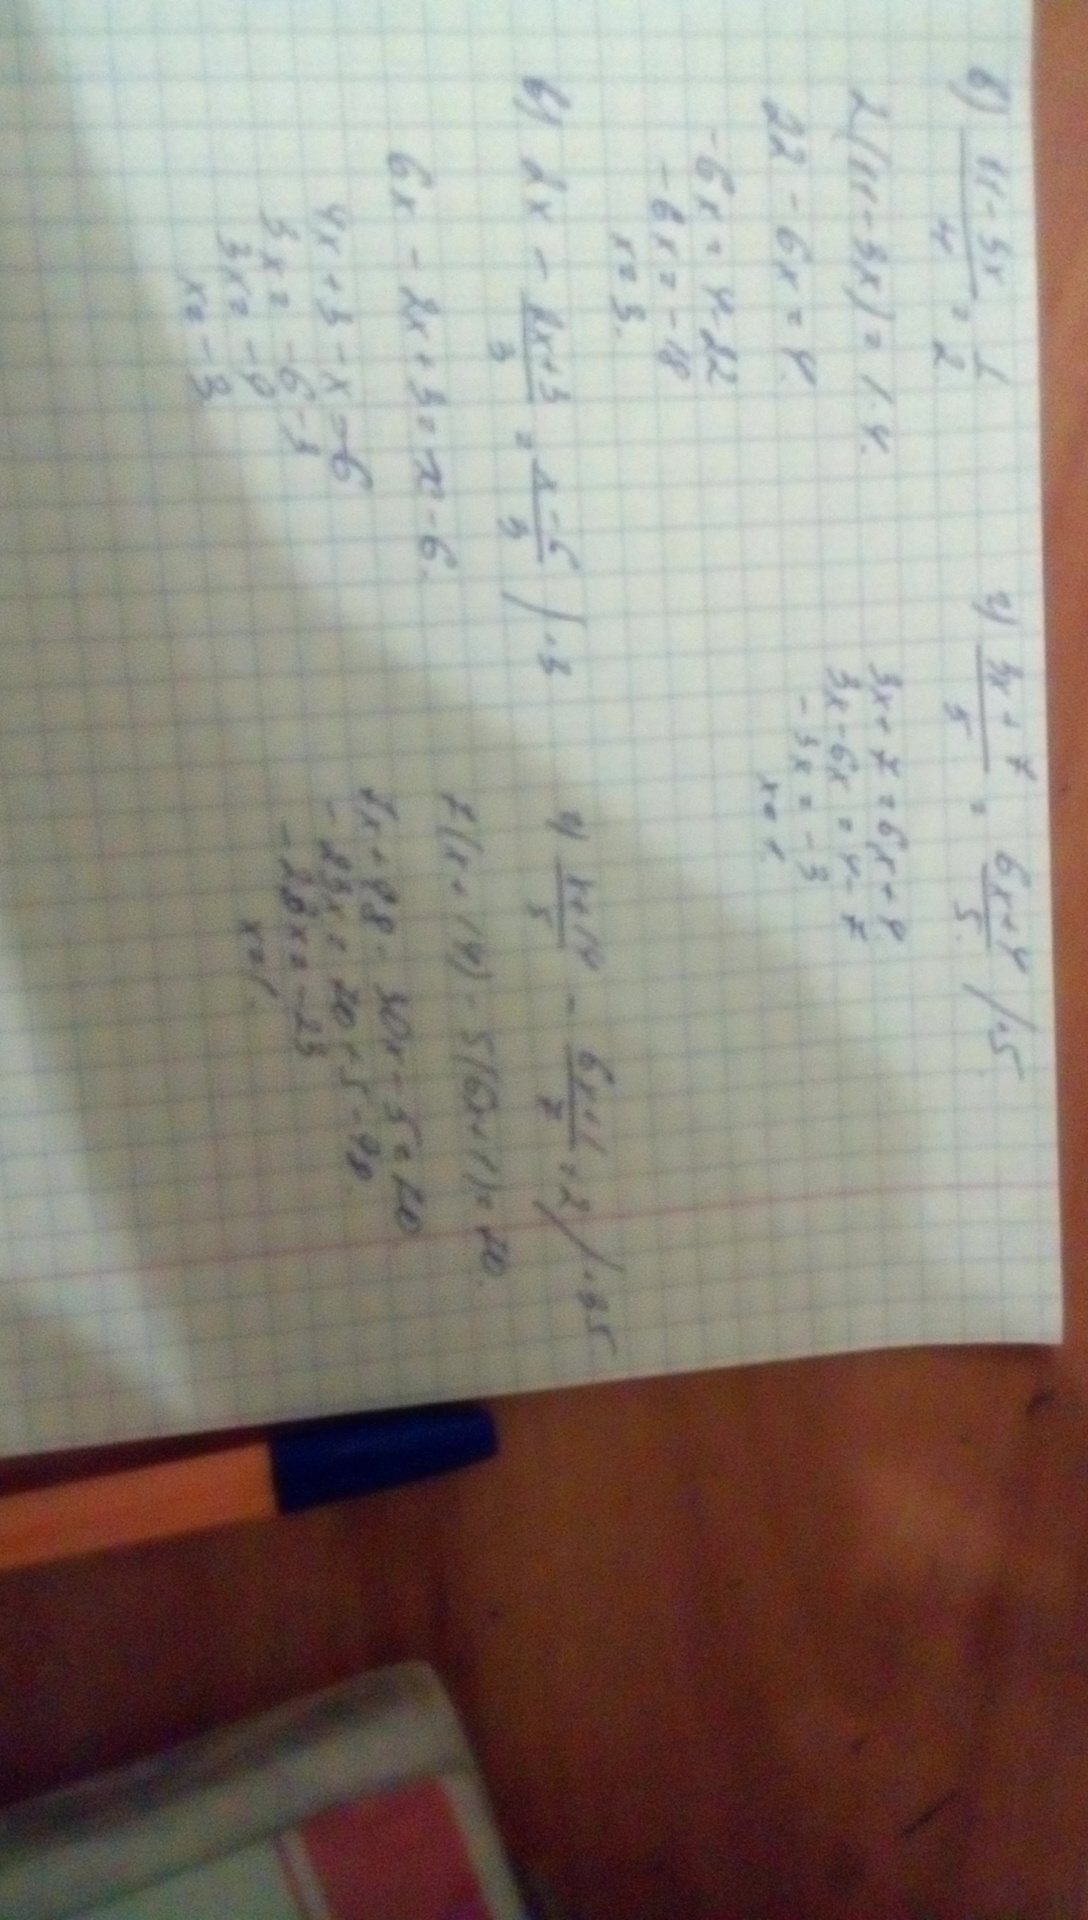 в) (11-3x)/4 = 1/2
2(11-3x) = 1·4.
22 - 6x = 4.
-6x = 4-22
-6x = -18
x = 3.
г) (3x + 7)/5 = (6x+4)/5 /·5
3x + 7 = 6x + 4
3x - 6x = 4 - 7
-3x = -3
x = 1.
в) 2x - (2x+3)/3 = (x-6)/3 /·3
6x - 2x + 3 = x - 6.
4x + 3 - x = -6
3x = -6-3
3x = -9
x = -3
г) (x+14)/5 - (6x+1)/7 = 2 /·35
7(x + 14) - 5(6x+1) = 70.
7x + 98 - 30x - 5 = 70
-23x = 70 + 5 - 98.
-23x = -23
x = 1.